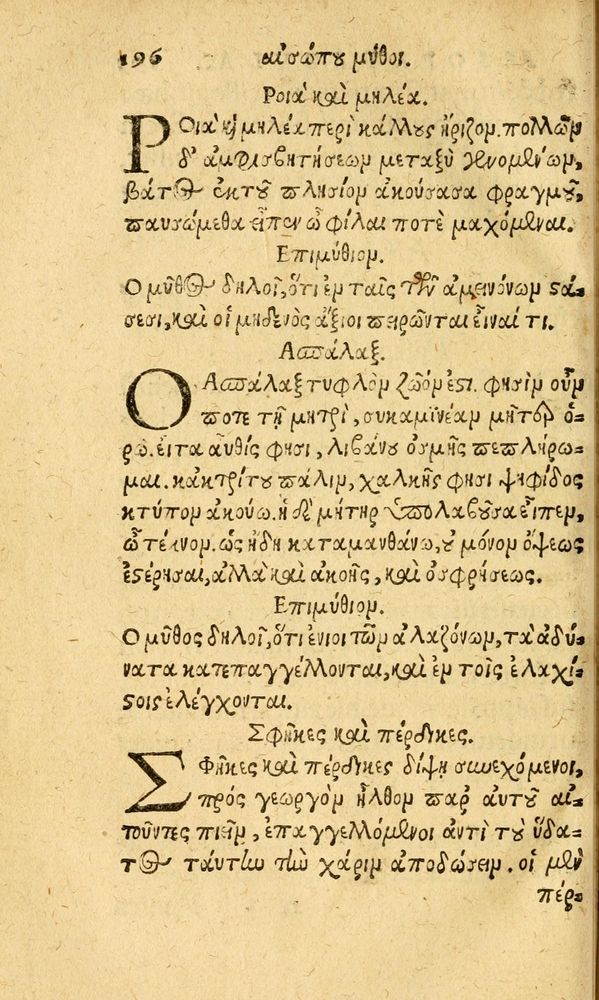 196 αἰσώπου μῦθοι.
Ροιὰ καὶ μηλέα.
ΡΟιὰ καὶ μηλέα περὶ κάλλους ἤριζον. πολλῶν
δ' ἀμφισβητήσεων μεταξὺ γενομένων,
βάτος ἐκ τοῦ πλησίον ἀκούσασα φραγμοῦ,
παυσώμεθα εἶπεν ὦ φίλαι ποτὲ μαχόμεναι.
Επιμύθιον.
Ο μῦθος δηλοῖ, ὅτι ἐν ταῖς τῶν ἀμεινόνων στά-
σεσι, καὶ οἱ μηδενὸς ἄξιοι πειρῶνται εἶναί τι.
Ασπάλαξ.
Ο Ασπάλαξ τυφλὸν ζῶόν ἐστι. φησὶν οὖν
ποτε τῇ μητρὶ, συκαμινέαν μῆτερ ὁ-
ρῶ. εἶτα αὖθίς φησι, λιβάνου ὀσμῆς πεπλήρω-
μαι. κἀκ τρίτου πάλιν, χαλκῆς φησι ψηφῖδος
κτύπον ἀκούω. ἡ δὲ μήτηρ ὑπολαβοῦσα εἶπεν,
ὦ τέκνον. ὡς ἤδη καταμανθάνω, οὐ μόνον ὄψεως
ἐστέρησαι, ἀλλὰ καὶ ἀκοῆς, καὶ ὀσφρήσεως.
Επιμύθιον.
Ο μῦθος δηλοῖ, ὅτι ἔνιοι τῶν ἀλαζόνων, τὰ ἀδύ-
νατα κατεπαγγέλλονται, καὶ ἐν τοῖς ἐλαχί-
στοις ἐλέγχονται.
Σφῆκες καὶ πέρδικες.
ΣΦῆκες καὶ πέρδικες δίψῃ συνεχόμενοι,
πρὸς γεωργὸν ἦλθον παρ' αὐτοῦ αἰ-
τοῦντες πιεῖν, ἐπαγγελλόμενοι ἀντὶ τοῦ ὕδα-
τος ταύτην τὴν χάριν ἀποδώσειν. οἱ μὲν
πέρ-